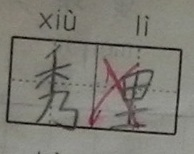 xiù lì
秀里